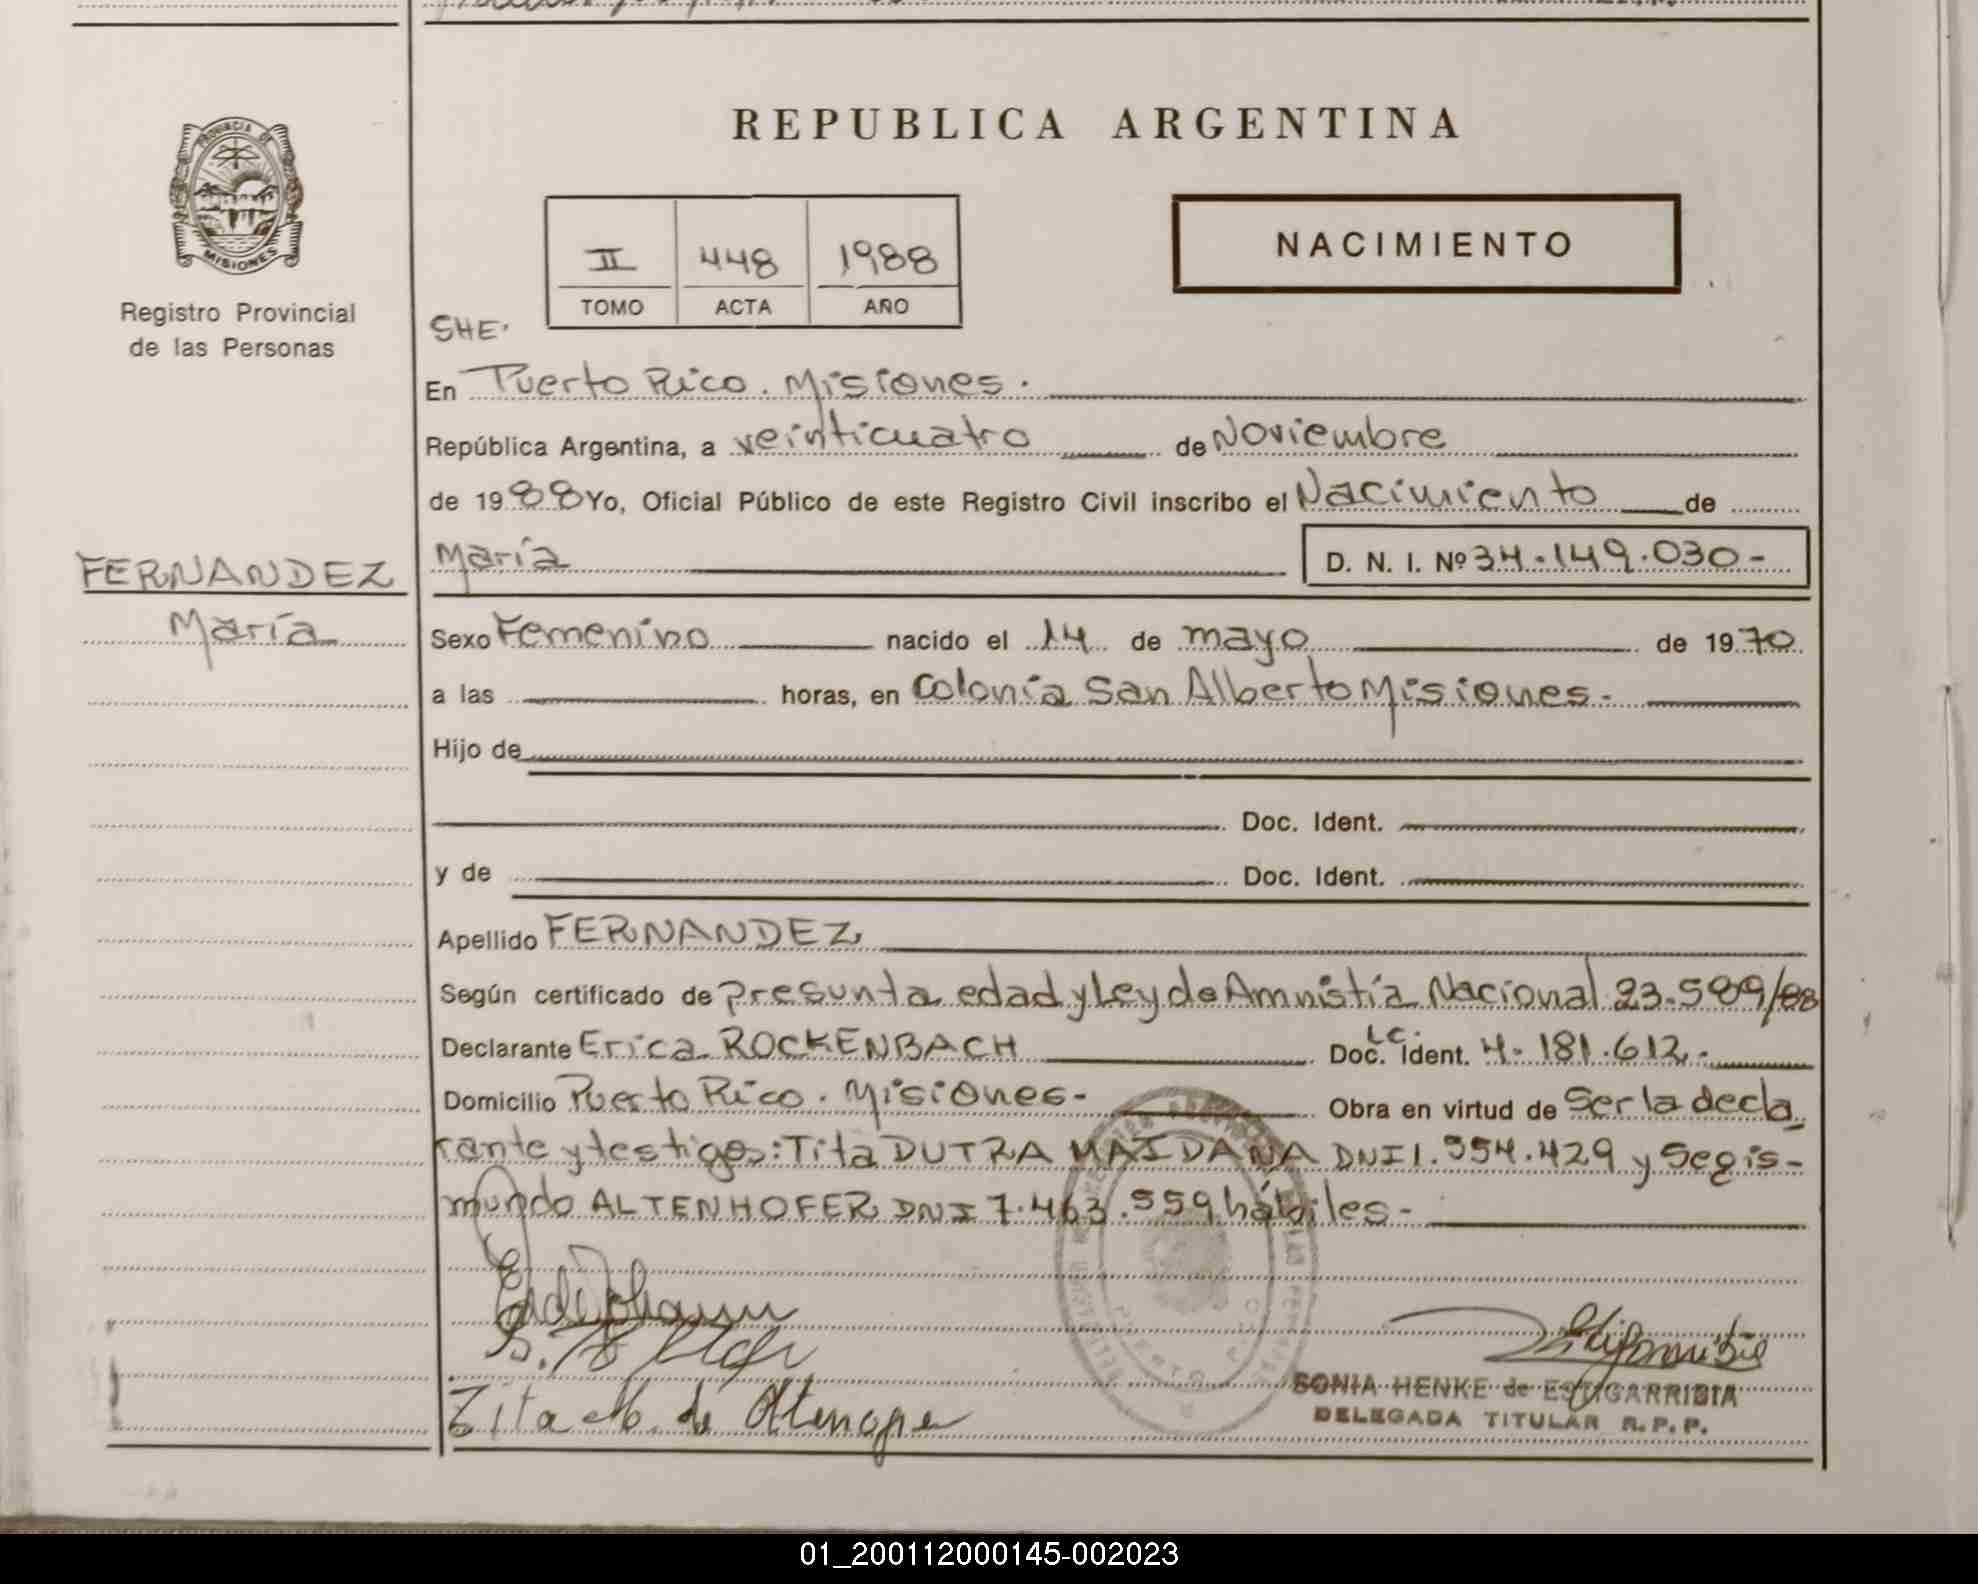 REPUBLICA ARGENTINA
PROVINCIA DE
MISIONES
Registro Provincial
de las Personas
II 448 1988
TOMO ACTA AÑO
NACIMIENTO
SHE.
En Puerto Rico. Misiones.
República Argentina, a veinticuatro de Noviembre
de 1988 Yo, Oficial Público de este Registro Civil inscribo el Nacimiento de
María D. N. I. Nº 34.149.030-
FERNANDEZ
María
Sexo Femenino nacido el 14 de mayo de 1970
a las horas, en Colonia San Alberto Misiones.
Hijo de
Doc. Ident.
y de Doc. Ident.
Apellido FERNANDEZ
Según certificado de presunta edad y Ley de Amnistía Nacional 23.589/88
Declarante Erica ROCKENBACH Doc. Ident. LC. 4.181.612.
Domicilio Puerto Rico. Misiones- Obra en virtud de Ser la decla
rante y testigos: Tita DUTRA MAIDANA DNI 1.954.429 y Segis-
mundo ALTENHOFER DNI 7.463.559 hábiles-
Zita de
SONIA HENKE de ESTIGARRIBIA
DELEGADA TITULAR R.P.P.
01_200112000145-002023